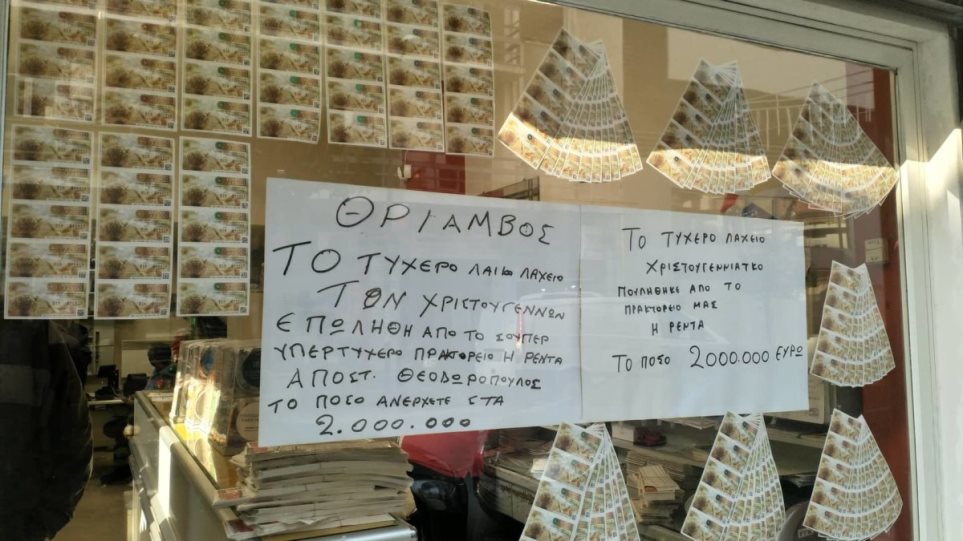 ΘΡΙΑΜΒΟΣ
ΤΟ ΤΥΧΕΡΟ ΛΑΙΚΟ ΛΑΧΕΙΟ
ΤΩΝ ΧΡΙΣΤΟΥΓΕΝΝΩΝ
ΕΠΩΛΗΘΗ ΑΠΟ ΤΟ ΣΟΥΠΕΡ
ΥΠΕΡΤΥΧΕΡΟ ΠΡΑΚΤΟΡΕΙΟ Η ΡΕΝΤΑ
ΑΠΟΣΤ. ΘΕΟΔΩΡΟΠΟΥΛΟΣ
ΤΟ ΠΟΣΟ ΑΝΕΡΧΕΤΕ ΣΤΑ
2.000.000
ΤΟ ΤΥΧΕΡΟ ΛΑΧΕΙΟ
ΧΡΙΣΤΟΥΓΕΝΝΙΑΤΚΟ
ΠΟΥΛΗΘΗΚΕ ΑΠΟ ΤΟ
ΠΡΑΚΤΟΡΕΙΟ ΜΑΣ
Η ΡΕΝΤΑ
ΤΟ ΠΟΣΟ 2000.000 ΕΥΡΩ